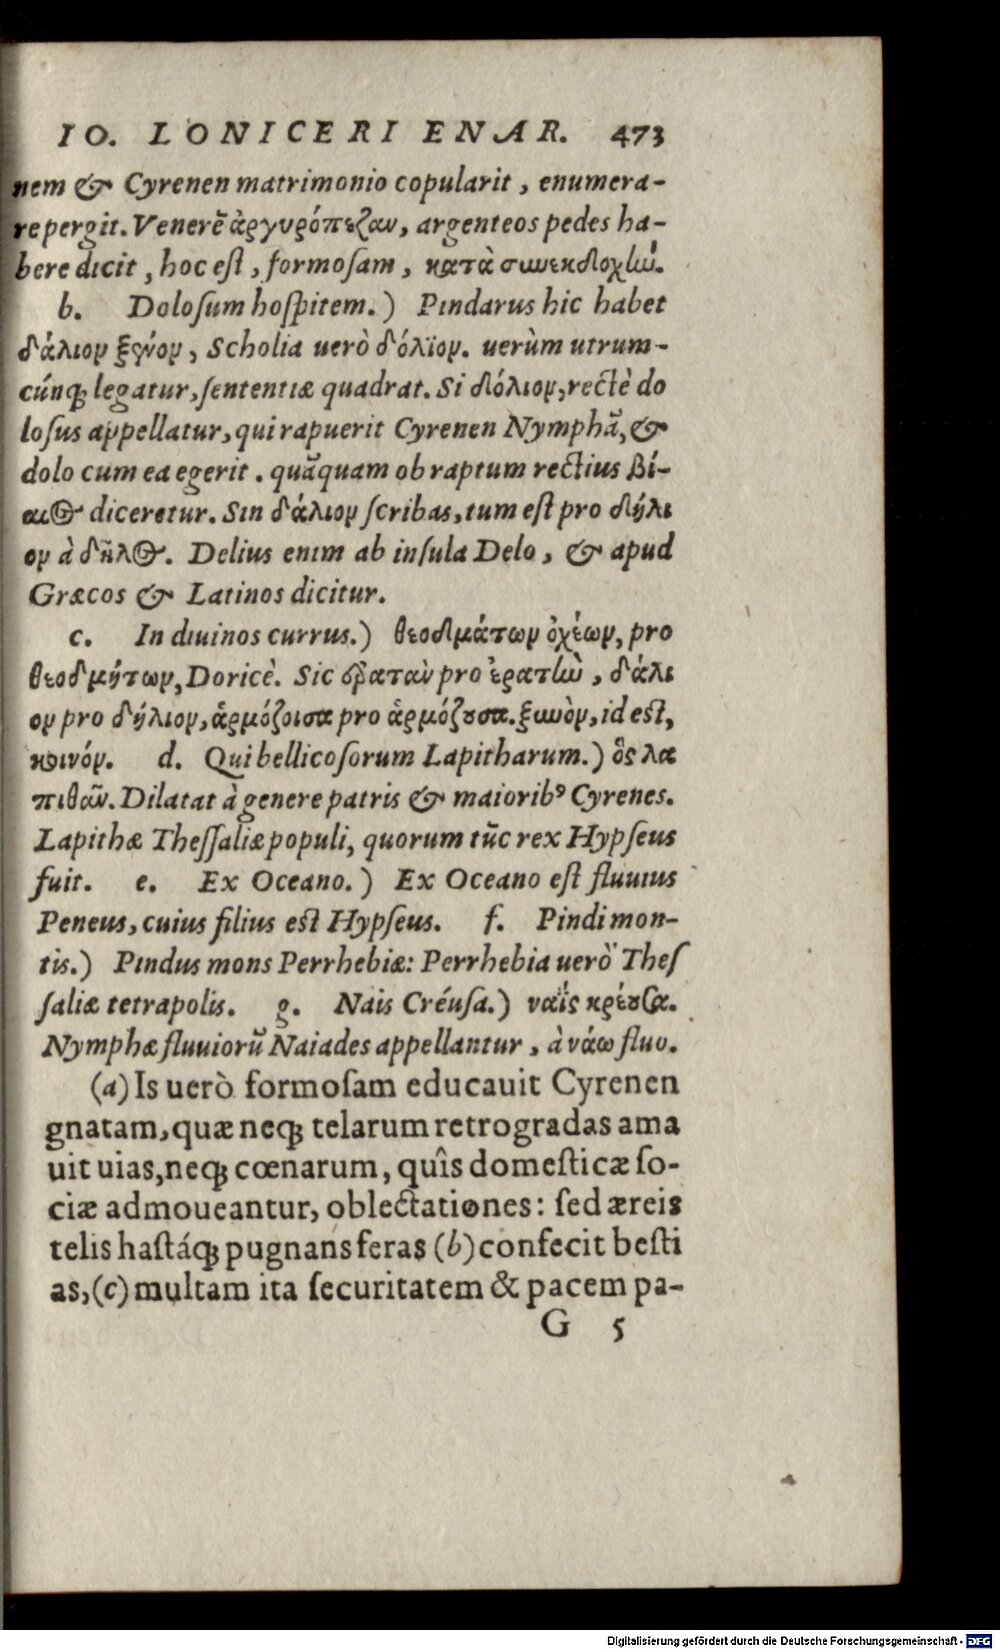 IO. LONICERI ENAR. 473
nem & Cyrenen matrimonio copularit, enumera-
re pergit. Venerē ἀργυρόπεζαν, argenteos pedes ha-
bere dicit, hoc est, formosam, κατὰ συνεκδοχὴν.
b. Dolosum hospitem.) Pindarus hic habet
δάλιον ξένον, Scholia uerò δόλϊον. uerùm utrum-
cúnq; legatur, sententiæ quadrat. Si δόλιον, rectè do
losus appellatur, qui rapuerit Cyrenen Nymphā, &
dolo cum ea egerit. quāquam ob raptum rectius βί-
αιος diceretur. Sin δάλιον scribas, tum est pro δήλι
ον à δῆλος. Delius enim ab insula Delo, & apud
Græcos & Latinos dicitur.
c. In diuinos currus.) θεοδμάτων ὀχέων, pro
θεοδμήτων, Doricè. Sic ἐρατὰν pro ἐρατὴν, δάλι
ον pro δήλιον, ἁρμόζοισα pro ἁρμόζουσα. ξυνὸν, id est,
κοινόν. d. Qui bellicosorum Lapitharum.) ὃς λα
πιθᾶν. Dilatat à genere patris & maiorib⁹ Cyrenes.
Lapithæ Thessaliæ populi, quorum tūc rex Hypseus
fuit. e. Ex Oceano.) Ex Oceano est fluuius
Peneus, cuius filius est Hypseus. f. Pindi mon-
tis.) Pindus mons Perrhebiæ: Perrhebia uerò Thes
saliæ tetrapolis. g. Nais Créusa.) ναῒς κρέουσα.
Nymphæ fluuiorū Naiades appellantur, à νάω fluo.
(a) Is uerò formosam educauit Cyrenen
gnatam, quæ neq; telarum retrogradas ama
uit uias, neq; cœnarum, quîs domesticæ so-
ciæ admoueantur, oblectationes: sed æreis
telis hastáq; pugnans feras (b) confecit besti
as, (c) multam ita securitatem & pacem pa-
G 5
Digitalisierung gefördert durch die Deutsche Forschungsgemeinschaft - DFG